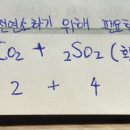 전연소하기 위해 필요한
CO₂ + ₂SO₂ (
2 + 4